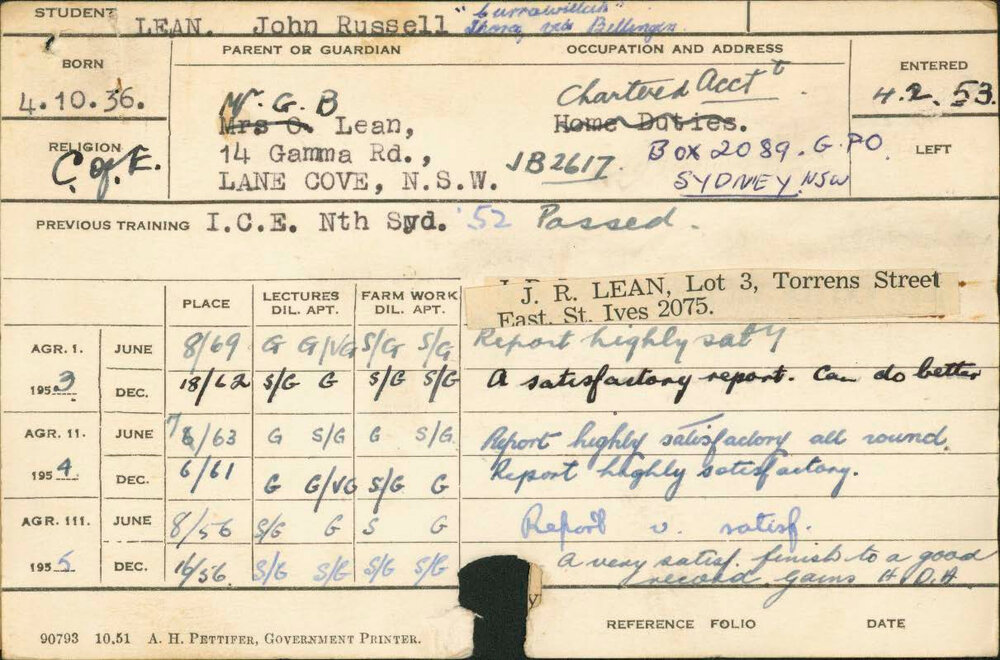 STUDENT LEAN. John Russell "Currawillah"
Thora via Bellingen
PARENT OR GUARDIAN OCCUPATION AND ADDRESS
BORN ENTERED
4.10.36. Mr. G. B Chartered Acct t 4.2.53.
Mrs O. Lean, Home Duties.
RELIGION 14 Gamma Rd., JB2617. Box 2089. G.P.O. LEFT
C of E. LANE COVE, N.S.W. SYDNEY. NSW
PREVIOUS TRAINING I.C.E. Nth Syd. '52 Passed.
J. R. LEAN, Lot 3, Torrens Street
East, St. Ives 2075.
PLACE LECTURES FARM WORK
DIL. APT. DIL. APT.
AGR. 1. JUNE 8/69 G G/VG S/G S/G Report highly saty
1953 DEC. 18/62 S/G G S/G S/G A satisfactory report. Can do better
AGR. 11. JUNE /63 G S/G G S/G Report highly satisfactory all round
1954 DEC. 6/61 G G/VG S/G G Report highly satisfactory.
AGR. 111. JUNE 8/56 S/G G S G Report v. satisf.
1955 DEC. 16/56 S/G S/G S/G S/G A very satisf. finish to a good
record. Gains H.D.A
REFERENCE FOLIO DATE
90793 10.51 A. H. PETTIFER, GOVERNMENT PRINTER.